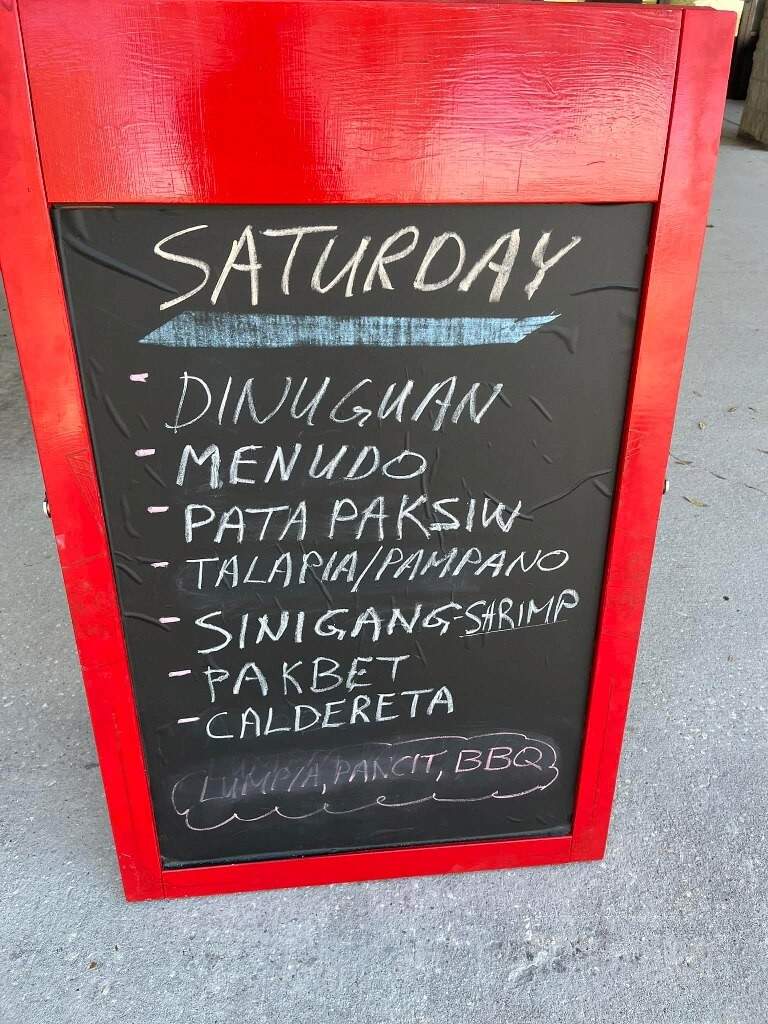 SATURDAY
- DINUGUAN
- MENUDO
- PATA PAKSIW
- TALAPIA/PAMPANO
- SINIGANG-SHRIMP
- PAKBET
- CALDERETA
LUMPIA, PANCIT, BBQ